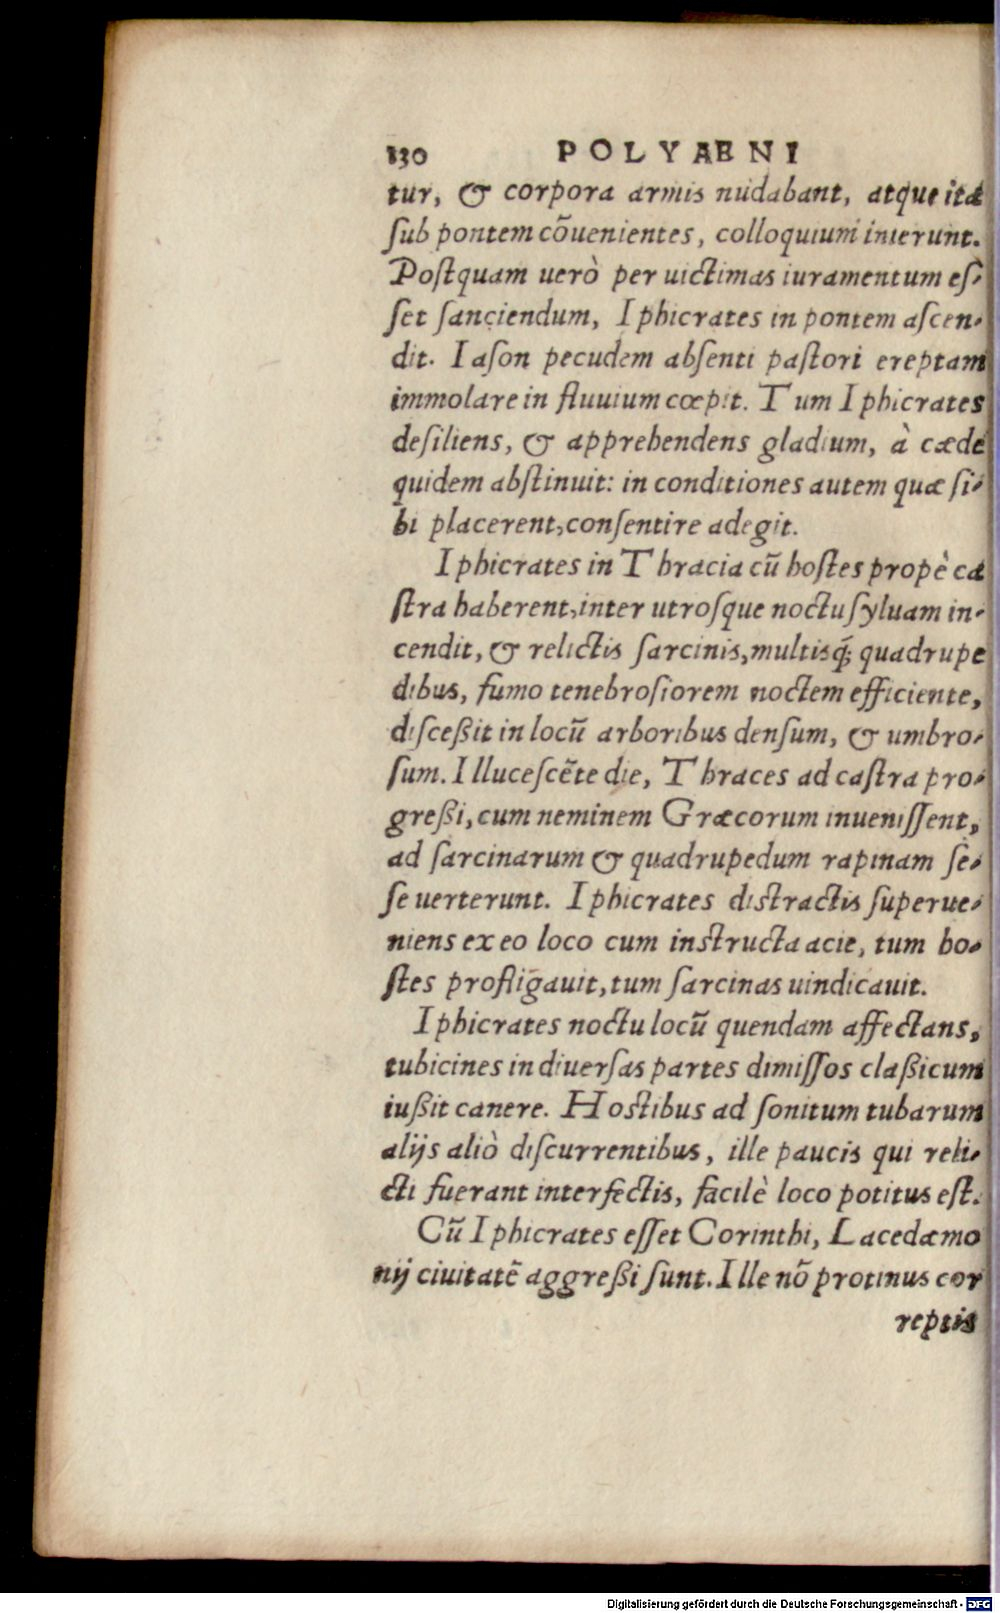 130 POLYAENI
tur, & corpora armis nudabant, atque ita
ſub pontem cõuenientes, colloquium inierunt.
Poſtquam uerò per uictimas iuramentum eſ-
ſet ſanciendum, Iphicrates in pontem aſcen-
dit. Iaſon pecudem abſenti paſtori ereptam
immolare in fluuium cœpit. Tum Iphicrates
deſiliens, & apprehendens gladium, à cæde
quidem abſtinuit: in conditiones autem quæ ſi-
bi placerent, conſentire adegit.
Iphicrates in Thracia cũ hoſtes propè ca
ſtra haberent, inter utroſque noctu ſyluam in-
cendit, & relictis ſarcinis, multisq́; quadrupe
dibus, fumo tenebroſiorem noctem efficiente,
diſceßit in locũ arboribus denſum, & umbro-
ſum. Illuceſcẽte die, Thraces ad caſtra pro-
greßi, cum neminem Græcorum inueniſſent,
ad ſarcinarum & quadrupedum rapinam ſe-
ſe uerterunt. Iphicrates diſtractis ſuperue-
niens ex eo loco cum inſtructa acie, tum ho-
ſtes profligauit, tum ſarcinas uindicauit.
Iphicrates noctu locũ quendam affectans,
tubicines in diuerſas partes dimiſſos claßicum
iußit canere. Hoſtibus ad ſonitum tubarum
alijs aliò diſcurrentibus, ille paucis qui reli-
cti fuerant interfectis, facilè loco potitus eſt.
Cũ Iphicrates eſſet Corinthi, Lacedæmo
nij ciuitatẽ aggreßi ſunt. Ille nõ protinus cor
reptis
Digitalisierung gefördert durch die Deutsche Forschungsgemeinschaft - DFG